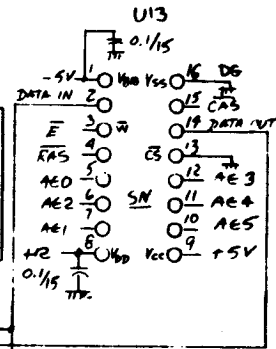 U13
0.1/15
-5V 1 VBB VSS 16 DG
DATA IN 2 15 CAS
E 3 W 14 DATA OUT
RAS 4 CS 13
AE0 5 12 AE3
AE2 6 SN 11 AE4
AE1 7 10 AE5
+12 8 VDD VCC 9 +5V
0.1/15